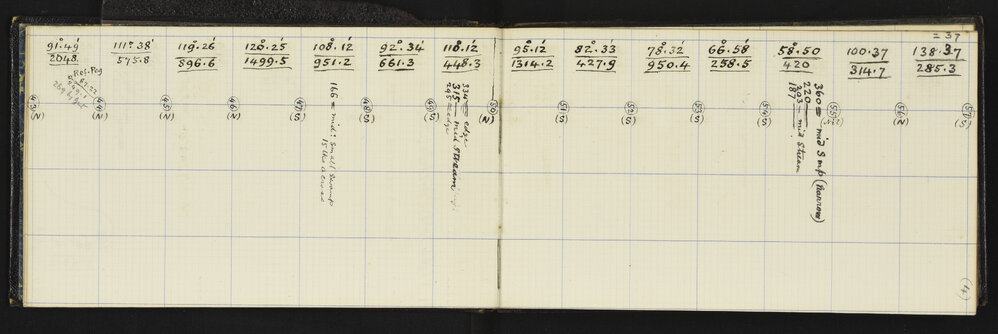 = 37
91°.49' 111°.38' 119°.26' 120°.25' 108°.12' 92°.34' 118°.12' 95.12 82°.33 78°.32 66°.58 58°.50 100.37 138.37
2048. 575.8 896.6 1499.5 951.2 661.3 448.3 1314.2 427.9 950.4 258.5 420 314.7 285.3
Ref. Peg
(N)
44
(N)
45
(N)
46
(N)
47
(S)
166 = mid: small swamp
15 lks across
48
(S)
49
(S)
334 = edge
315 = mid stream
295 = edge
50
(N)
51
(S)
52
(S)
53
(S)
54
(S)
360 = mid Smp (narrow)
220
203 = mid stream
187
55
56
(N)
57
(S)
(4)